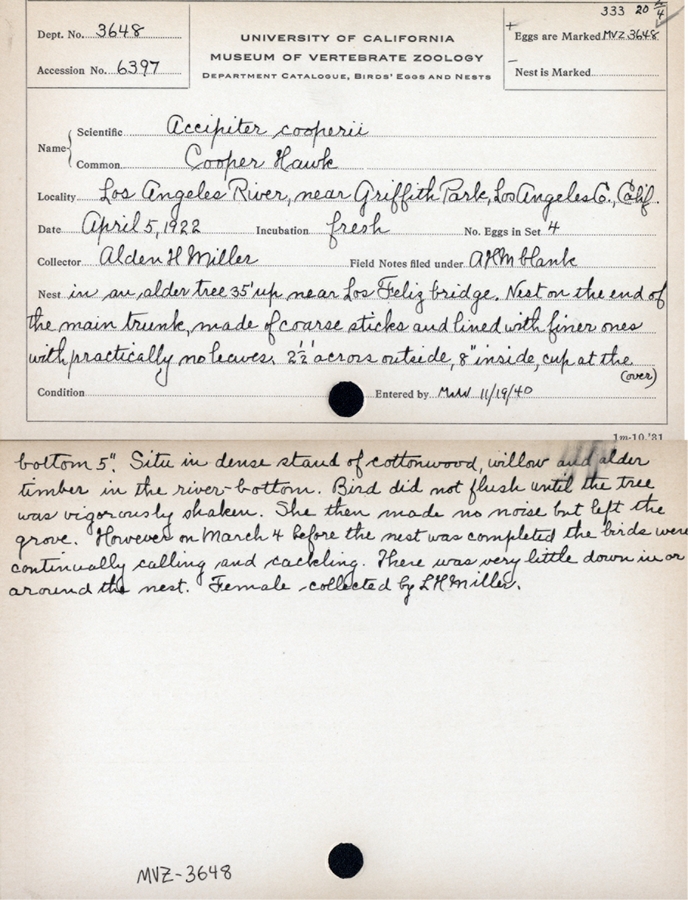 333 20 2/4
Dept. No. 3648
UNIVERSITY OF CALIFORNIA
+ Eggs are Marked MVZ 3648
MUSEUM OF VERTEBRATE ZOOLOGY
Accession No. 6397
DEPARTMENT CATALOGUE, BIRDS' EGGS AND NESTS
– Nest is Marked
Name { Scientific Accipiter cooperii
Common Cooper Hawk
Locality Los Angeles River, near Griffith Park, Los Angeles Co., Calif.
Date April 5, 1922 Incubation fresh No. Eggs in Set 4
Collector Alden H Miller Field Notes filed under AHM blank
Nest in an alder tree 35' up near Los Feliz bridge. Nest on the end of
the main trunk, made of coarse sticks and lined with finer ones
with practically no leaves. 2½' across outside, 8" inside, cup at the
(over)
Condition Entered by 11/19/40
1m-10,'31
bottom 5". Situ in dense stand of cottonwood, willow and alder
timber in the river-bottom. Bird did not flush until the tree
was vigorously shaken. She then made no noise but left the
grove. However on March 4 before the nest was completed the birds were
continually calling and cackling. There was very little down in or
around the nest. Female collected by L H Miller.
MVZ-3648